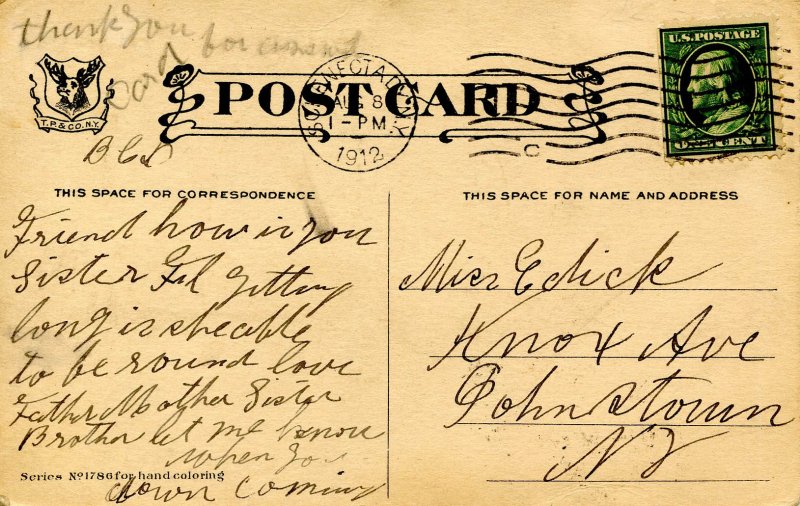 thank you
for
card
T.P.& CO. N.Y.
POST CARD
SCHENECTADY
AUG 8
1-PM
1912
U.S. POSTAGE
ONE CENT
THIS SPACE FOR CORRESPONDENCE
THIS SPACE FOR NAME AND ADDRESS
Friend how is you
Sister getting
long is she able
to be around love
Father Mother Sister
Brother let me know
when you
down coming
Series No 1786 for hand coloring
Miss Edick
Knox Ave
Johnstown
NY